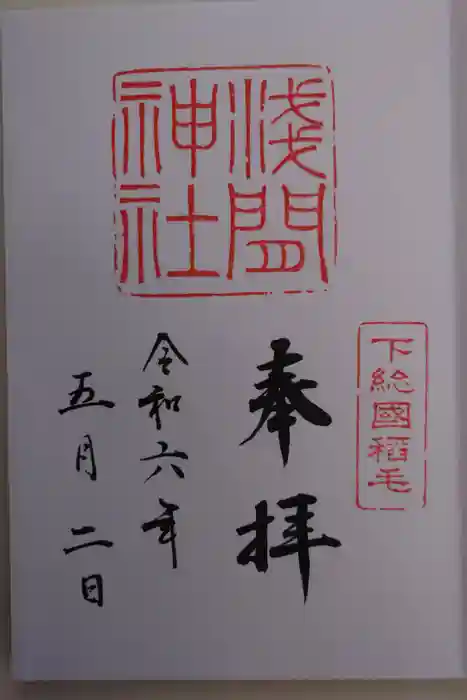 浅間
神社
下総國稲毛
奉拝
令和六年
五月二日